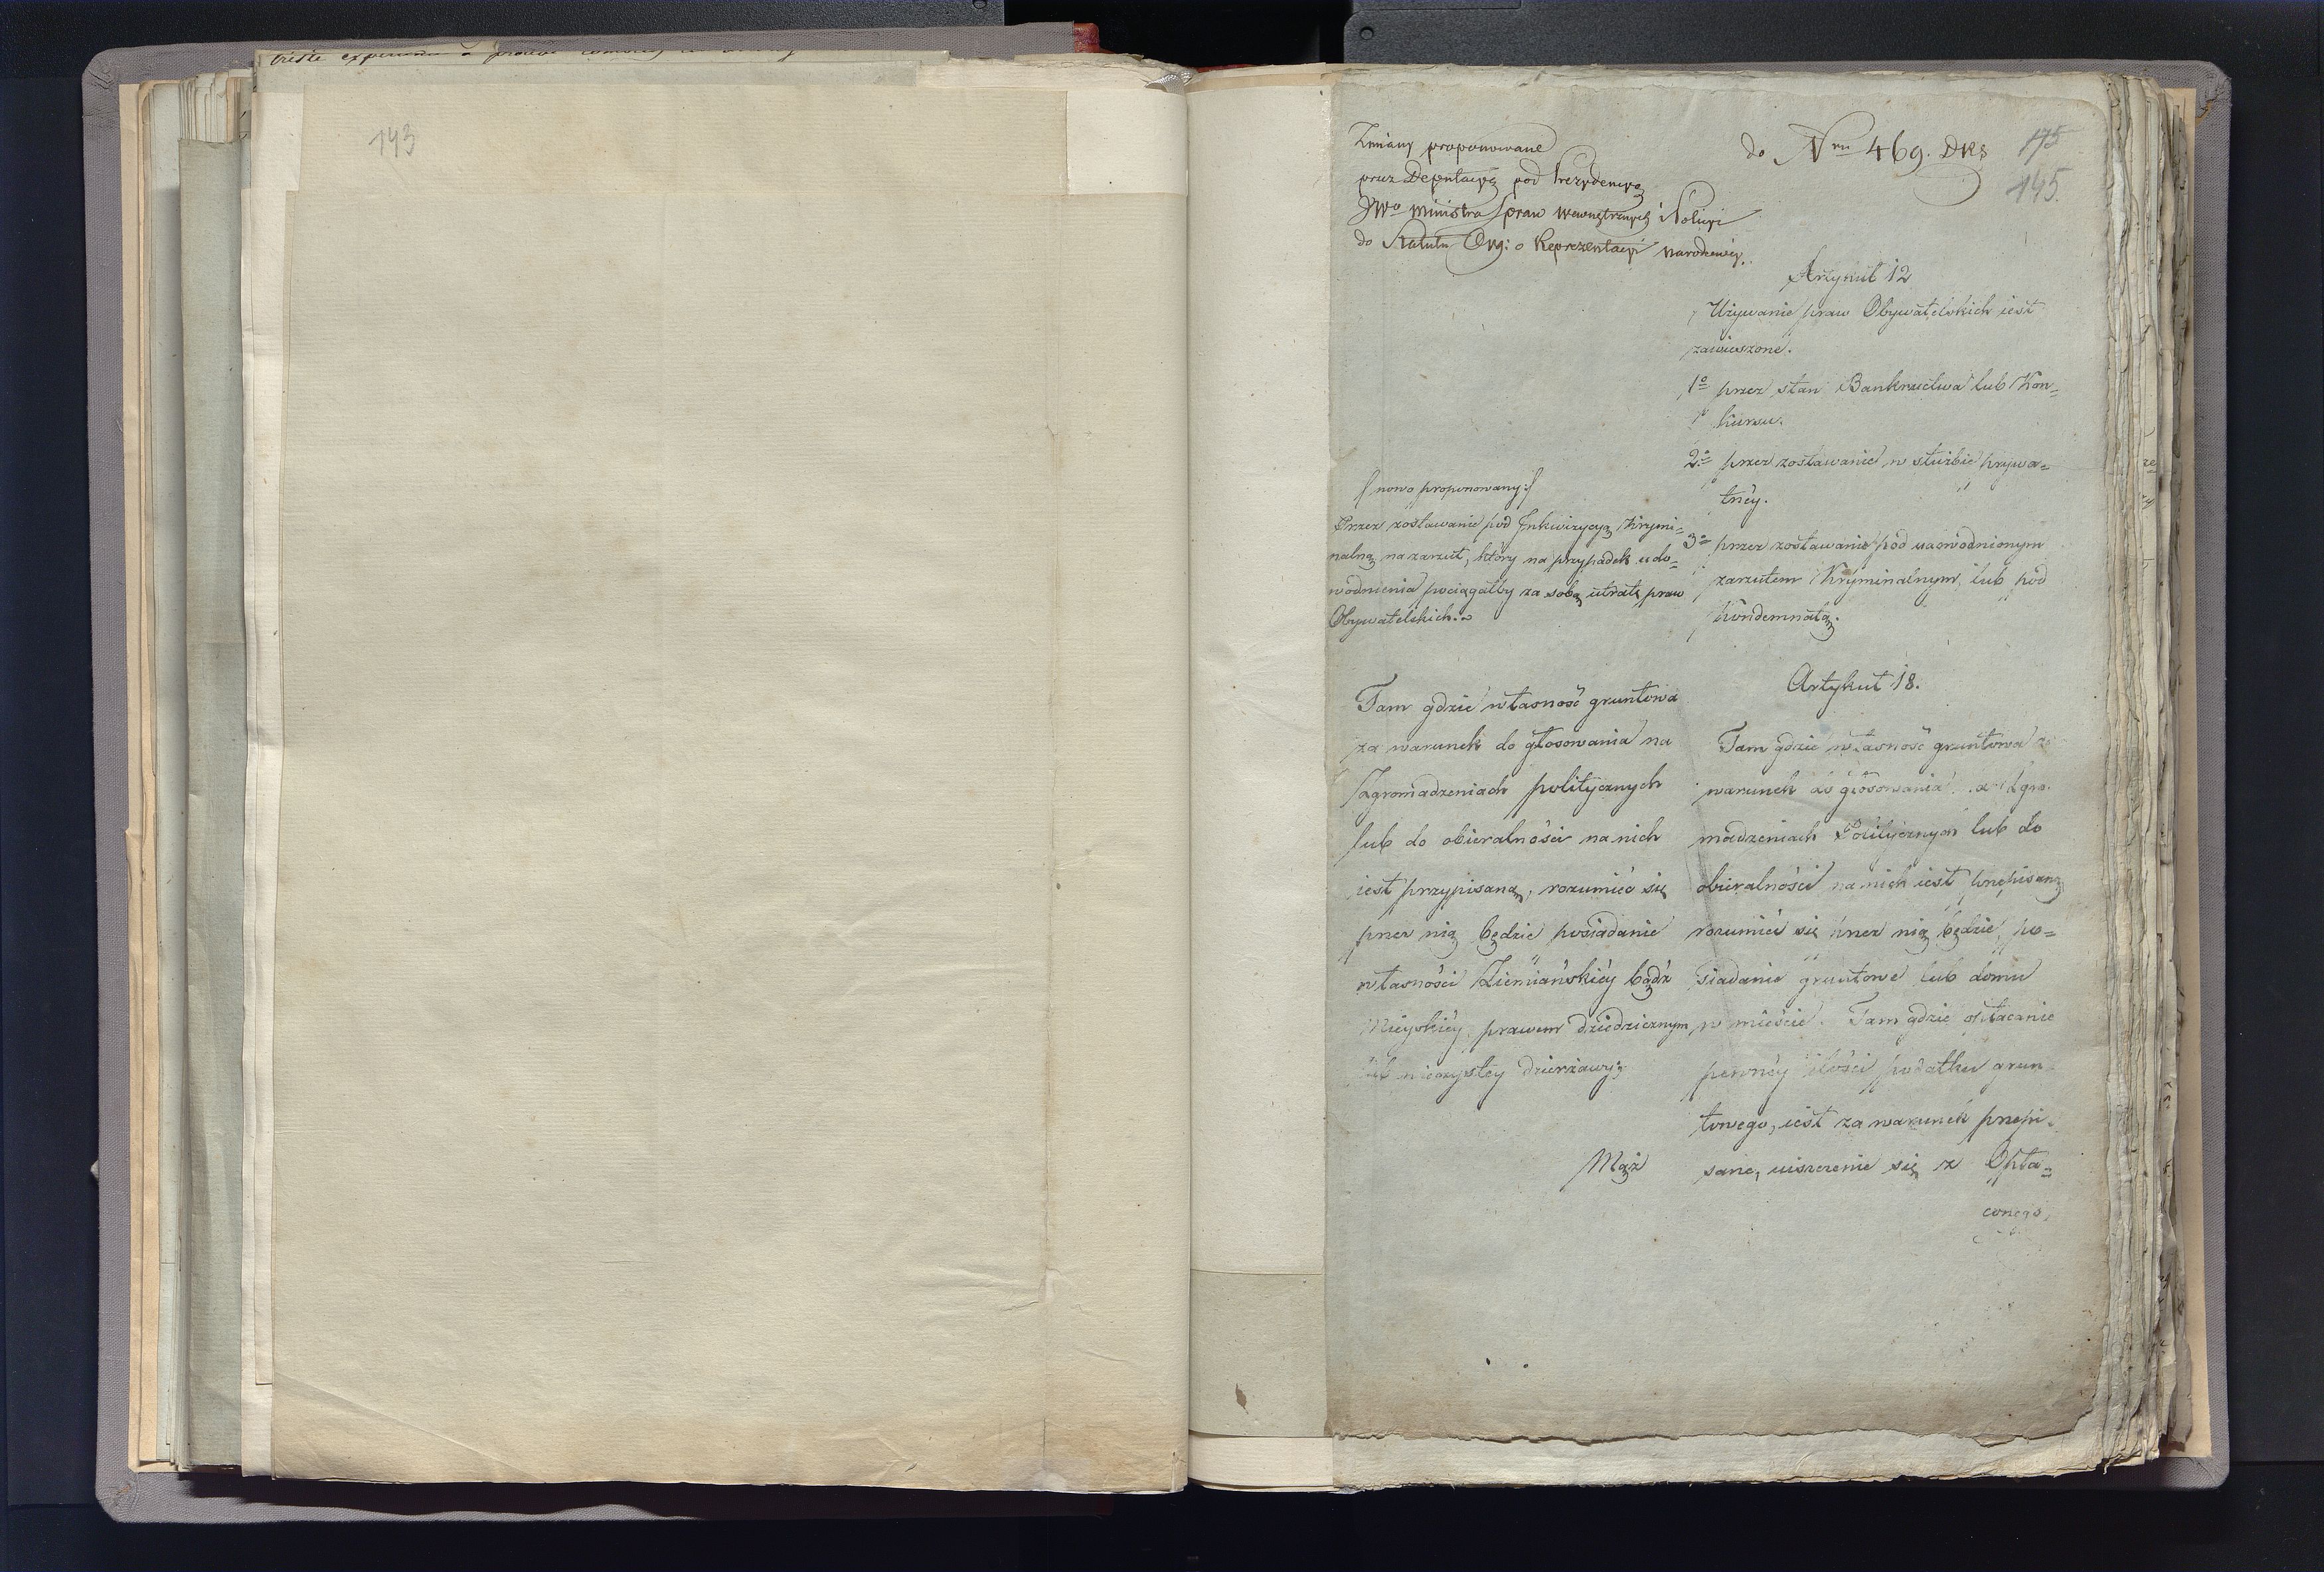 143
do Nru 469. DKs
175
145.
Zmiany proponowane
przez Deputacyą pod Prezydencyą
JWo Ministra Spraw Wewnętrznych i Policyi
do Statutu Org: o Reprezentacyi Narodowey.
Artykuł 12
Używanie praw Obywatelskich iest
zawieszone.
1o przez stan Bankructwa lub Kon=
kursu.
2o przez zostawanie w służbie prywa=
tney.
3o przez zostawanie pod uaowodnionym
zarzutem Kryminalnym lub pod
Kondemnatą.
/ nowo proponowany:/
Przez zostawanie pod Inkwizycyą Krymi=
nalną na zarzut, który na przypadek udo=
wodnienia pociągałby za sobą utratę praw
Obywatelskich.
Artykuł 18.
Tam gdzie własność gruntowa
za warunek do głosowania na
Zgromadzeniach politycznych
lub do obieralności na nich
iest przypisaną, rozumieć się
przez nią będzie posiadanie
własności Ziemiańskiéy bądź
Mieyskiéy prawem dziedzicznym
lub wieczystey dzierżawy;
Mąż
Tam gdzie własność gruntowa za
warunek do głosowania na Zgro=
madzeniach Politycznych lub do
obieralności na nich iest przepisaną
rozumieć się przez nią będzie po=
siadanie gruntowe lub domu
w mieście. Tam gdzie opłacanie
pewnéy ilości podatku grun=
towego, iest za warunek przepi=
sane, uiszczenie się z Opła=
conego,